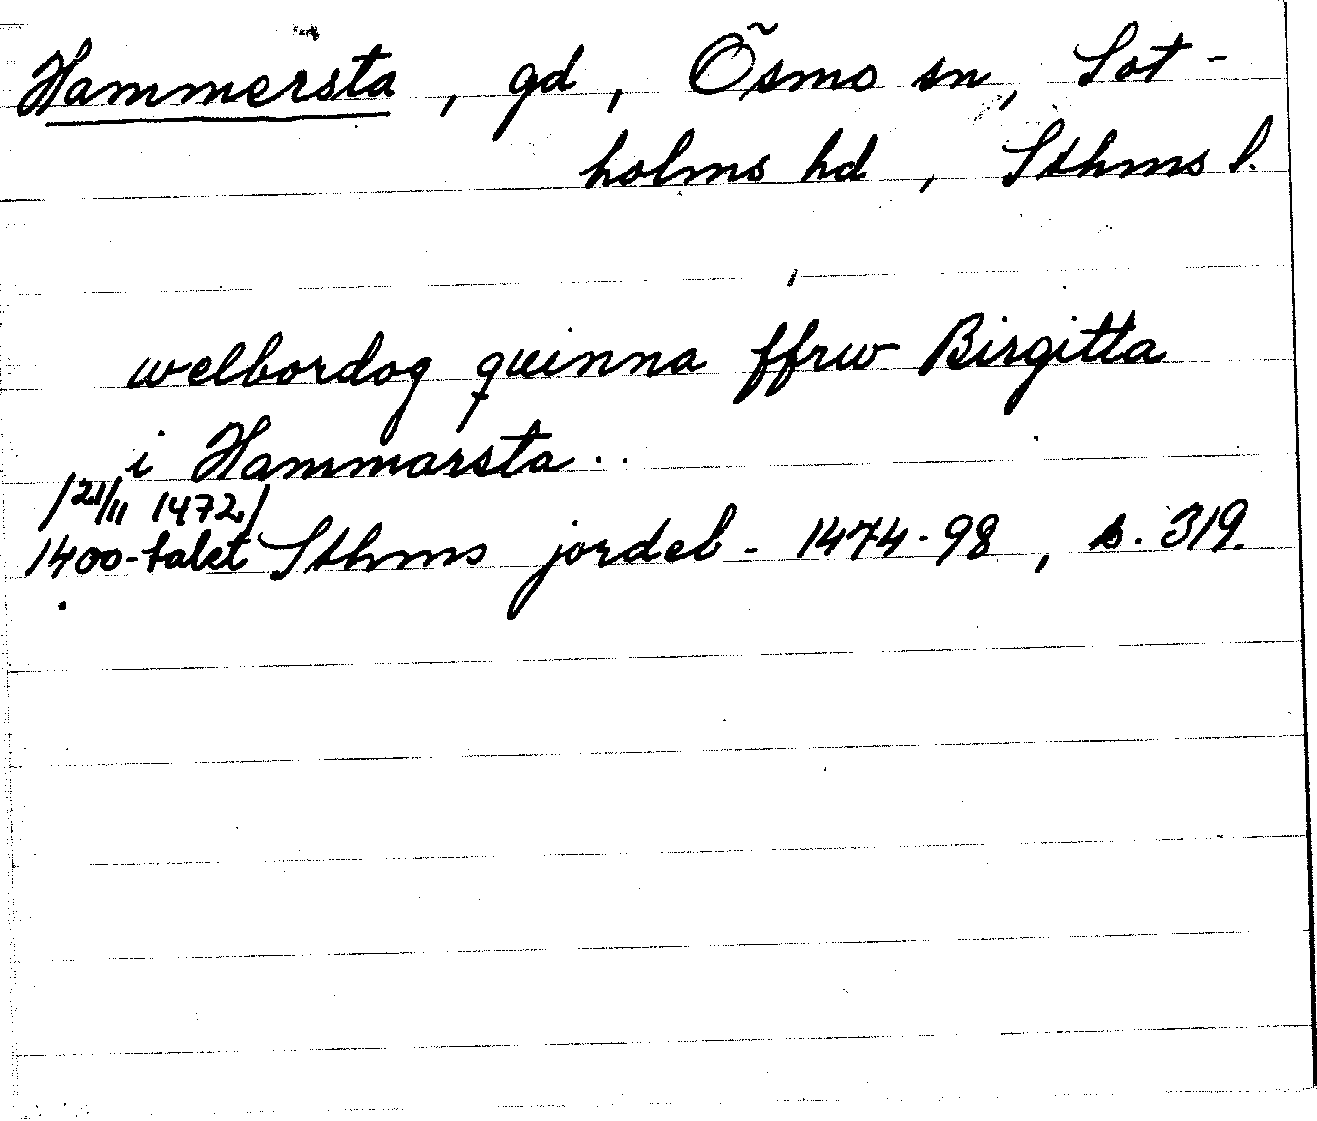 Hammersta, gd, Ösmo sn, Sot-
holms hd, Sthms l.
welbordog quinna ffrw Birgitta
i Hammarsta..
/21/11 1472/
1400-talet Sthms jordeb. 1474-98, s. 319.